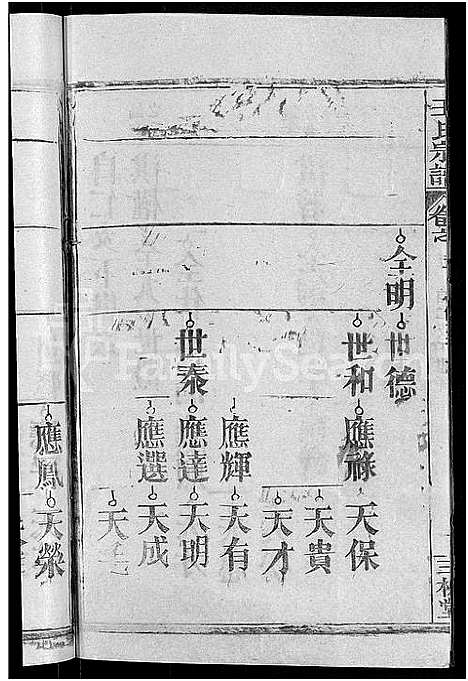 王氏宗譜
卷之
三槐堂
全明
世德
世和
世泰
應祿
應輝
應達
應選
天保
天貴
天才
天有
天明
天成
天
應鳳
天榮
FamilySearch